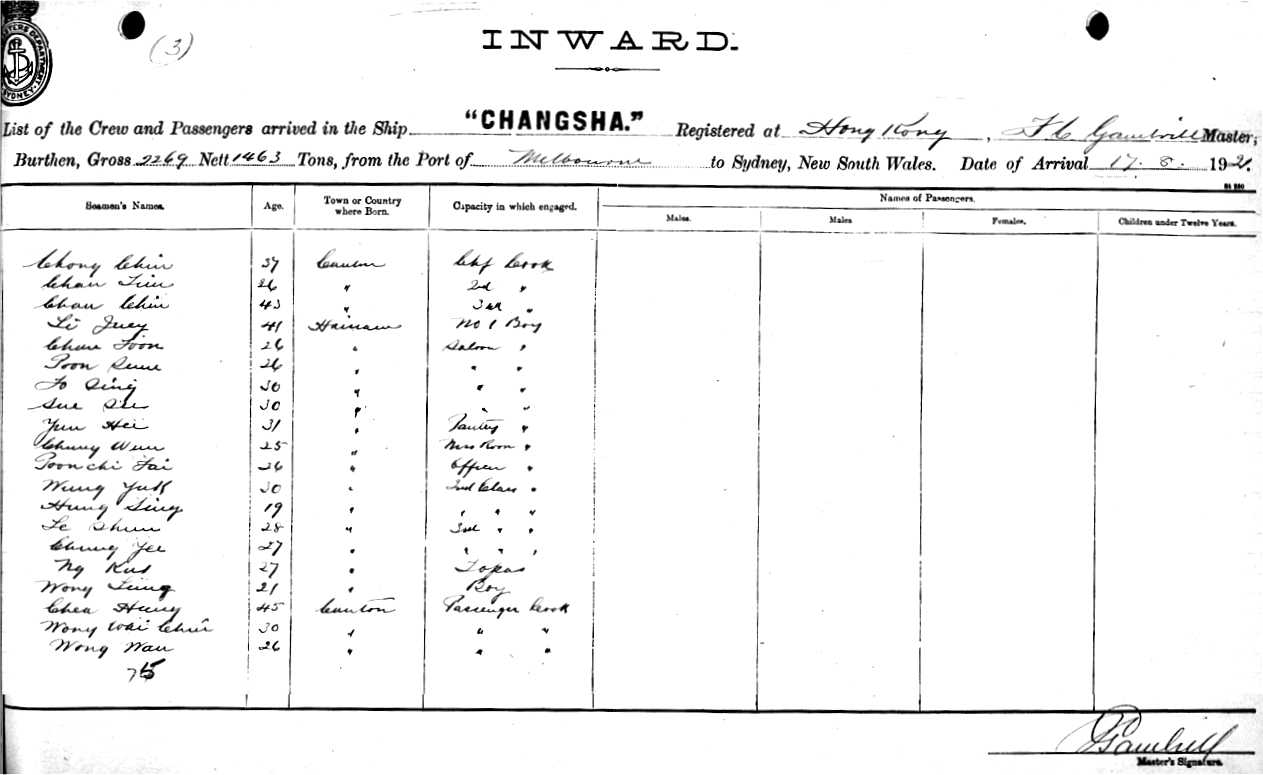 (3)
INWARD.
SYDNEY
List of the Crew and Passengers arrived in the Ship "CHANGSHA." Registered at Hong Kong, F C Gambrill Master,
Burthen, Gross 2269 Nett 1463 Tons, from the Port of Melbourne to Sydney, New South Wales. Date of Arrival 17. 8. 192
Seamen's Names. Age. Town or Country where Born. Capacity in which engaged. Names of Passengers.
Males. Males Females. Children under Twelve Years.
Chong Chin 37 Canton Chf Cook
Chan Tim 26 " 2nd "
Chan Chin 43 " 3rd "
Li Juey 41 Hainam No 1 Boy
Chun Foon 26 " Saloon "
Poon 26 " " "
Fo Sing 30 " " "
Sue See 30 " " "
Yun Hei 31 " Pantry "
Chung Wun 25 " Mess Room "
Poon Chi Fai 26 " Officer "
Wung Yuk 30 " 2nd Class "
Hung Sing 19 " " " "
Le Shun 28 " 3rd " "
Chung Yee 27 " " " "
Ng Kus 27 " Topas
Wong Tung 21 " Boy
Chea Hung 45 Canton Passenger Cook
Wong Wai Chin 30 " " "
Wong Wan 26 " " "
75
Gambrill
Master's Signature.